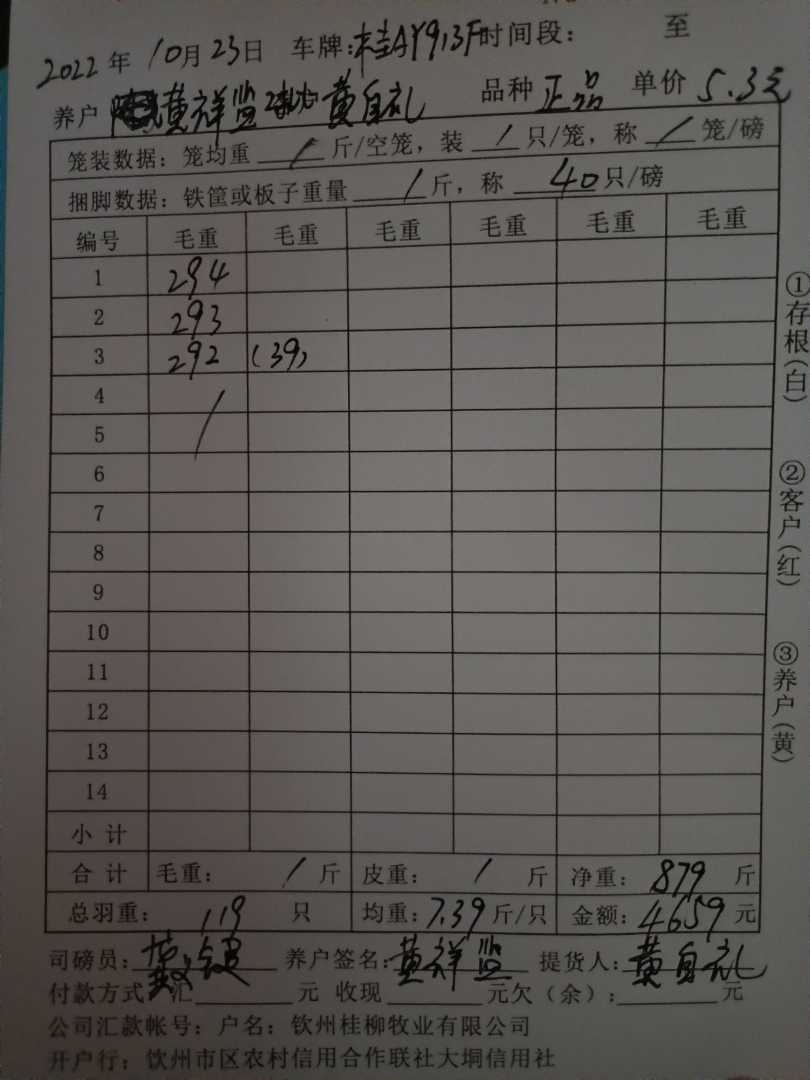 2022年10月23日 车牌:桂AY913F时间段: 至
养户 黄祥监 黄自礼 品种 正品 单价 5.3元
笼装数据: 笼均重 / 斤/空笼, 装 / 只/笼, 称 / 笼/磅
捆脚数据: 铁筐或板子重量 / 斤, 称 40 只/磅
编号 毛重 毛重 毛重 毛重 毛重 毛重
1 294
2 293
3 292 (39)
4 /
5
6
7
8
9
10
11
12
13
14
小计
合计 毛重: / 斤 皮重: / 斤 净重: 879 斤
总羽重: 119 只 均重: 7.39 斤/只 金额: 4659 元
司磅员: 养户签名: 黄祥监 提货人: 黄自礼
付款方式 汇 元 收现 元欠(余): 元
公司汇款帐号: 户名: 钦州桂柳牧业有限公司
开户行: 钦州市区农村信用合作联社大垌信用社
①存根(白)
②客户(红)
③养户(黄)